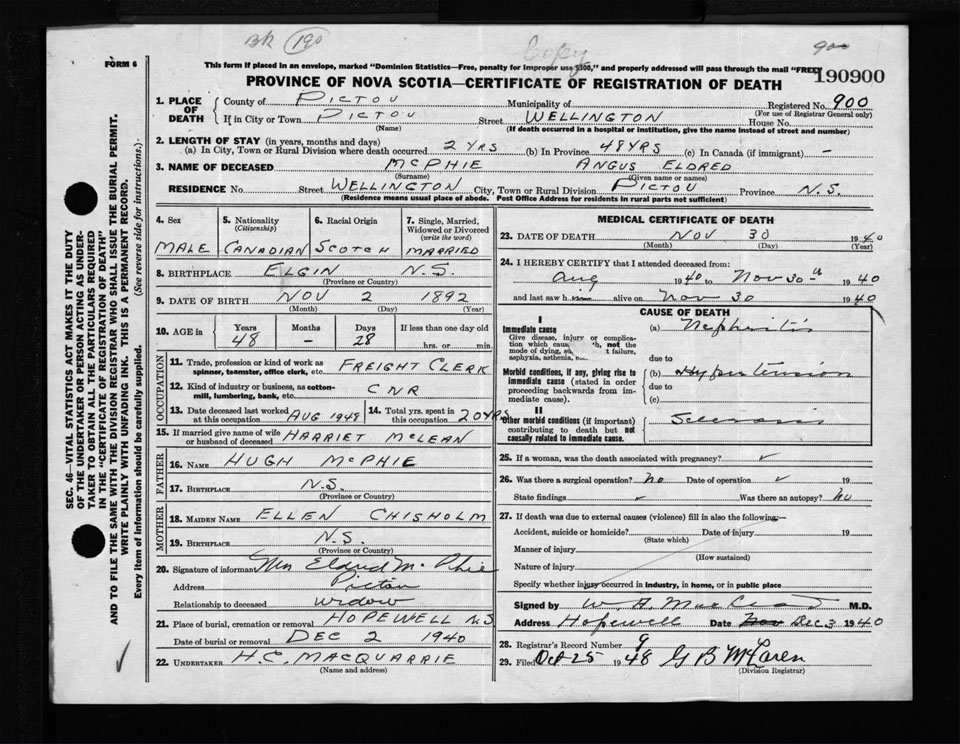 BK 190
Copy
900
FORM 6
This form if placed in an envelope, marked "Dominion Statistics—Free, penalty for improper use $300," and properly addressed will pass through the mail "FREE"
PROVINCE OF NOVA SCOTIA—CERTIFICATE OF REGISTRATION OF DEATH
190900
1. PLACE OF DEATH
County of PICTOU Municipality of Registered No. 900
If in City or Town PICTOU Street WELLINGTON House No.
(For use of Registrar General only)
(Name) (If death occurred in a hospital or institution, give the name instead of street and number)
2. LENGTH OF STAY (in years, months and days)
(a) In City, Town or Rural Division where death occurred 2 YRS (b) In Province 48 YRS (c) In Canada (if immigrant) —
3. NAME OF DECEASED MCPHIE ANGUS ELDRED
(Surname) (Given name or names)
RESIDENCE No. Street WELLINGTON City, Town or Rural Division PICTOU Province N.S.
(Residence means usual place of abode. Post Office Address for residents in rural parts not sufficient)
4. Sex
MALE
5. Nationality (Citizenship)
CANADIAN
6. Racial Origin
SCOTCH
7. Single, Married, Widowed or Divorced (write the word)
MARRIED
8. BIRTHPLACE ELGIN N.S.
(Province or Country)
9. DATE OF BIRTH NOV 2 1892
(Month) (Day) (Year)
10. AGE in Years Months Days If less than one day old
48 — 28 hrs. or min.
OCCUPATION
11. Trade, profession or kind of work as spinner, teamster, office clerk, etc. FREIGHT CLERK
12. Kind of industry or business, as cotton-mill, lumbering, bank, etc. CNR
13. Date deceased last worked at this occupation AUG 1948
14. Total yrs. spent in this occupation 20 YRS
15. If married give name of wife or husband of deceased HARRIET MCLEAN
FATHER
16. NAME HUGH MCPHIE
17. BIRTHPLACE N.S.
(Province or Country)
MOTHER
18. MAIDEN NAME ELLEN CHISHOLM
19. BIRTHPLACE N.S.
(Province or Country)
20. Signature of informant Mrs Eldred McPhie
Address Pictou
Relationship to deceased widow
21. Place of burial, cremation or removal HOPEWELL N.S
Date of burial or removal DEC 2 1940
22. UNDERTAKER H.C. MACQUARRIE
(Name and address)
MEDICAL CERTIFICATE OF DEATH
23. DATE OF DEATH NOV 30 1940
(Month) (Day) (Year)
24. I HEREBY CERTIFY that I attended deceased from:
Aug 1940 to Nov 30th 1940
and last saw him alive on Nov 30 1940
CAUSE OF DEATH
I
Immediate cause
Give disease, injury or complication which caused, not the mode of dying, such failure, asphyxia, asthenia, etc.
(a) Nephritis
due to
Morbid conditions, if any, giving rise to immediate cause (stated in order proceeding backwards from immediate cause).
(b) Hypertension
due to
(c)
II
Other morbid conditions (if important) contributing to death but not causally related to immediate cause.
Sclerosis
25. If a woman, was the death associated with pregnancy? ✓
26. Was there a surgical operation? No Date of operation ✓ 19
State findings Was there an autopsy? No
27. If death was due to external causes (violence) fill in also the following:—
Accident, suicide or homicide? Date of injury 19
(State which)
Manner of injury
(How sustained)
Nature of injury
Specify whether injury occurred in industry, in home, or in public place
Signed by W. A. MacLeod M.D.
Address Hopewell Date Nov Dec 3 1940
28. Registrar's Record Number 9
29. Filed Oct 25 1948 G B McLaren
(Division Registrar)
SEC. 46—VITAL STATISTICS ACT MAKES IT THE DUTY
OF THE UNDERTAKER OR PERSON ACTING AS UNDER-
TAKER TO OBTAIN ALL THE PARTICULARS REQUIRED
IN THE "CERTIFICATE OF REGISTRATION OF DEATH"
AND TO FILE THE SAME WITH THE DIVISION REGISTRAR WHO SHALL ISSUE THE BURIAL PERMIT.
WRITE PLAINLY WITH UNFADING INK. THIS IS A PERMANENT RECORD.
Every item of information should be carefully supplied. (See reverse side for instructions.)